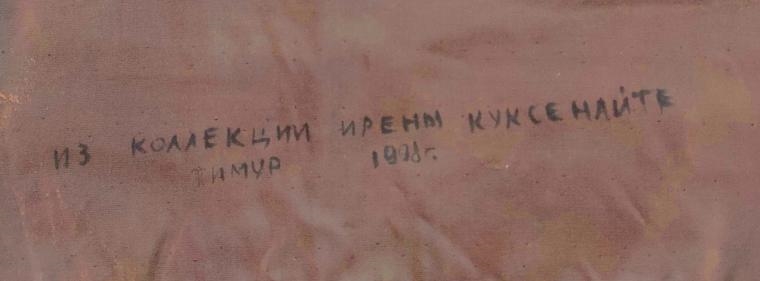 ИЗ КОЛЛЕКЦИИ ИРЕНЫ КУКСЕНАЙТЕ
ТИМУР 1998г.